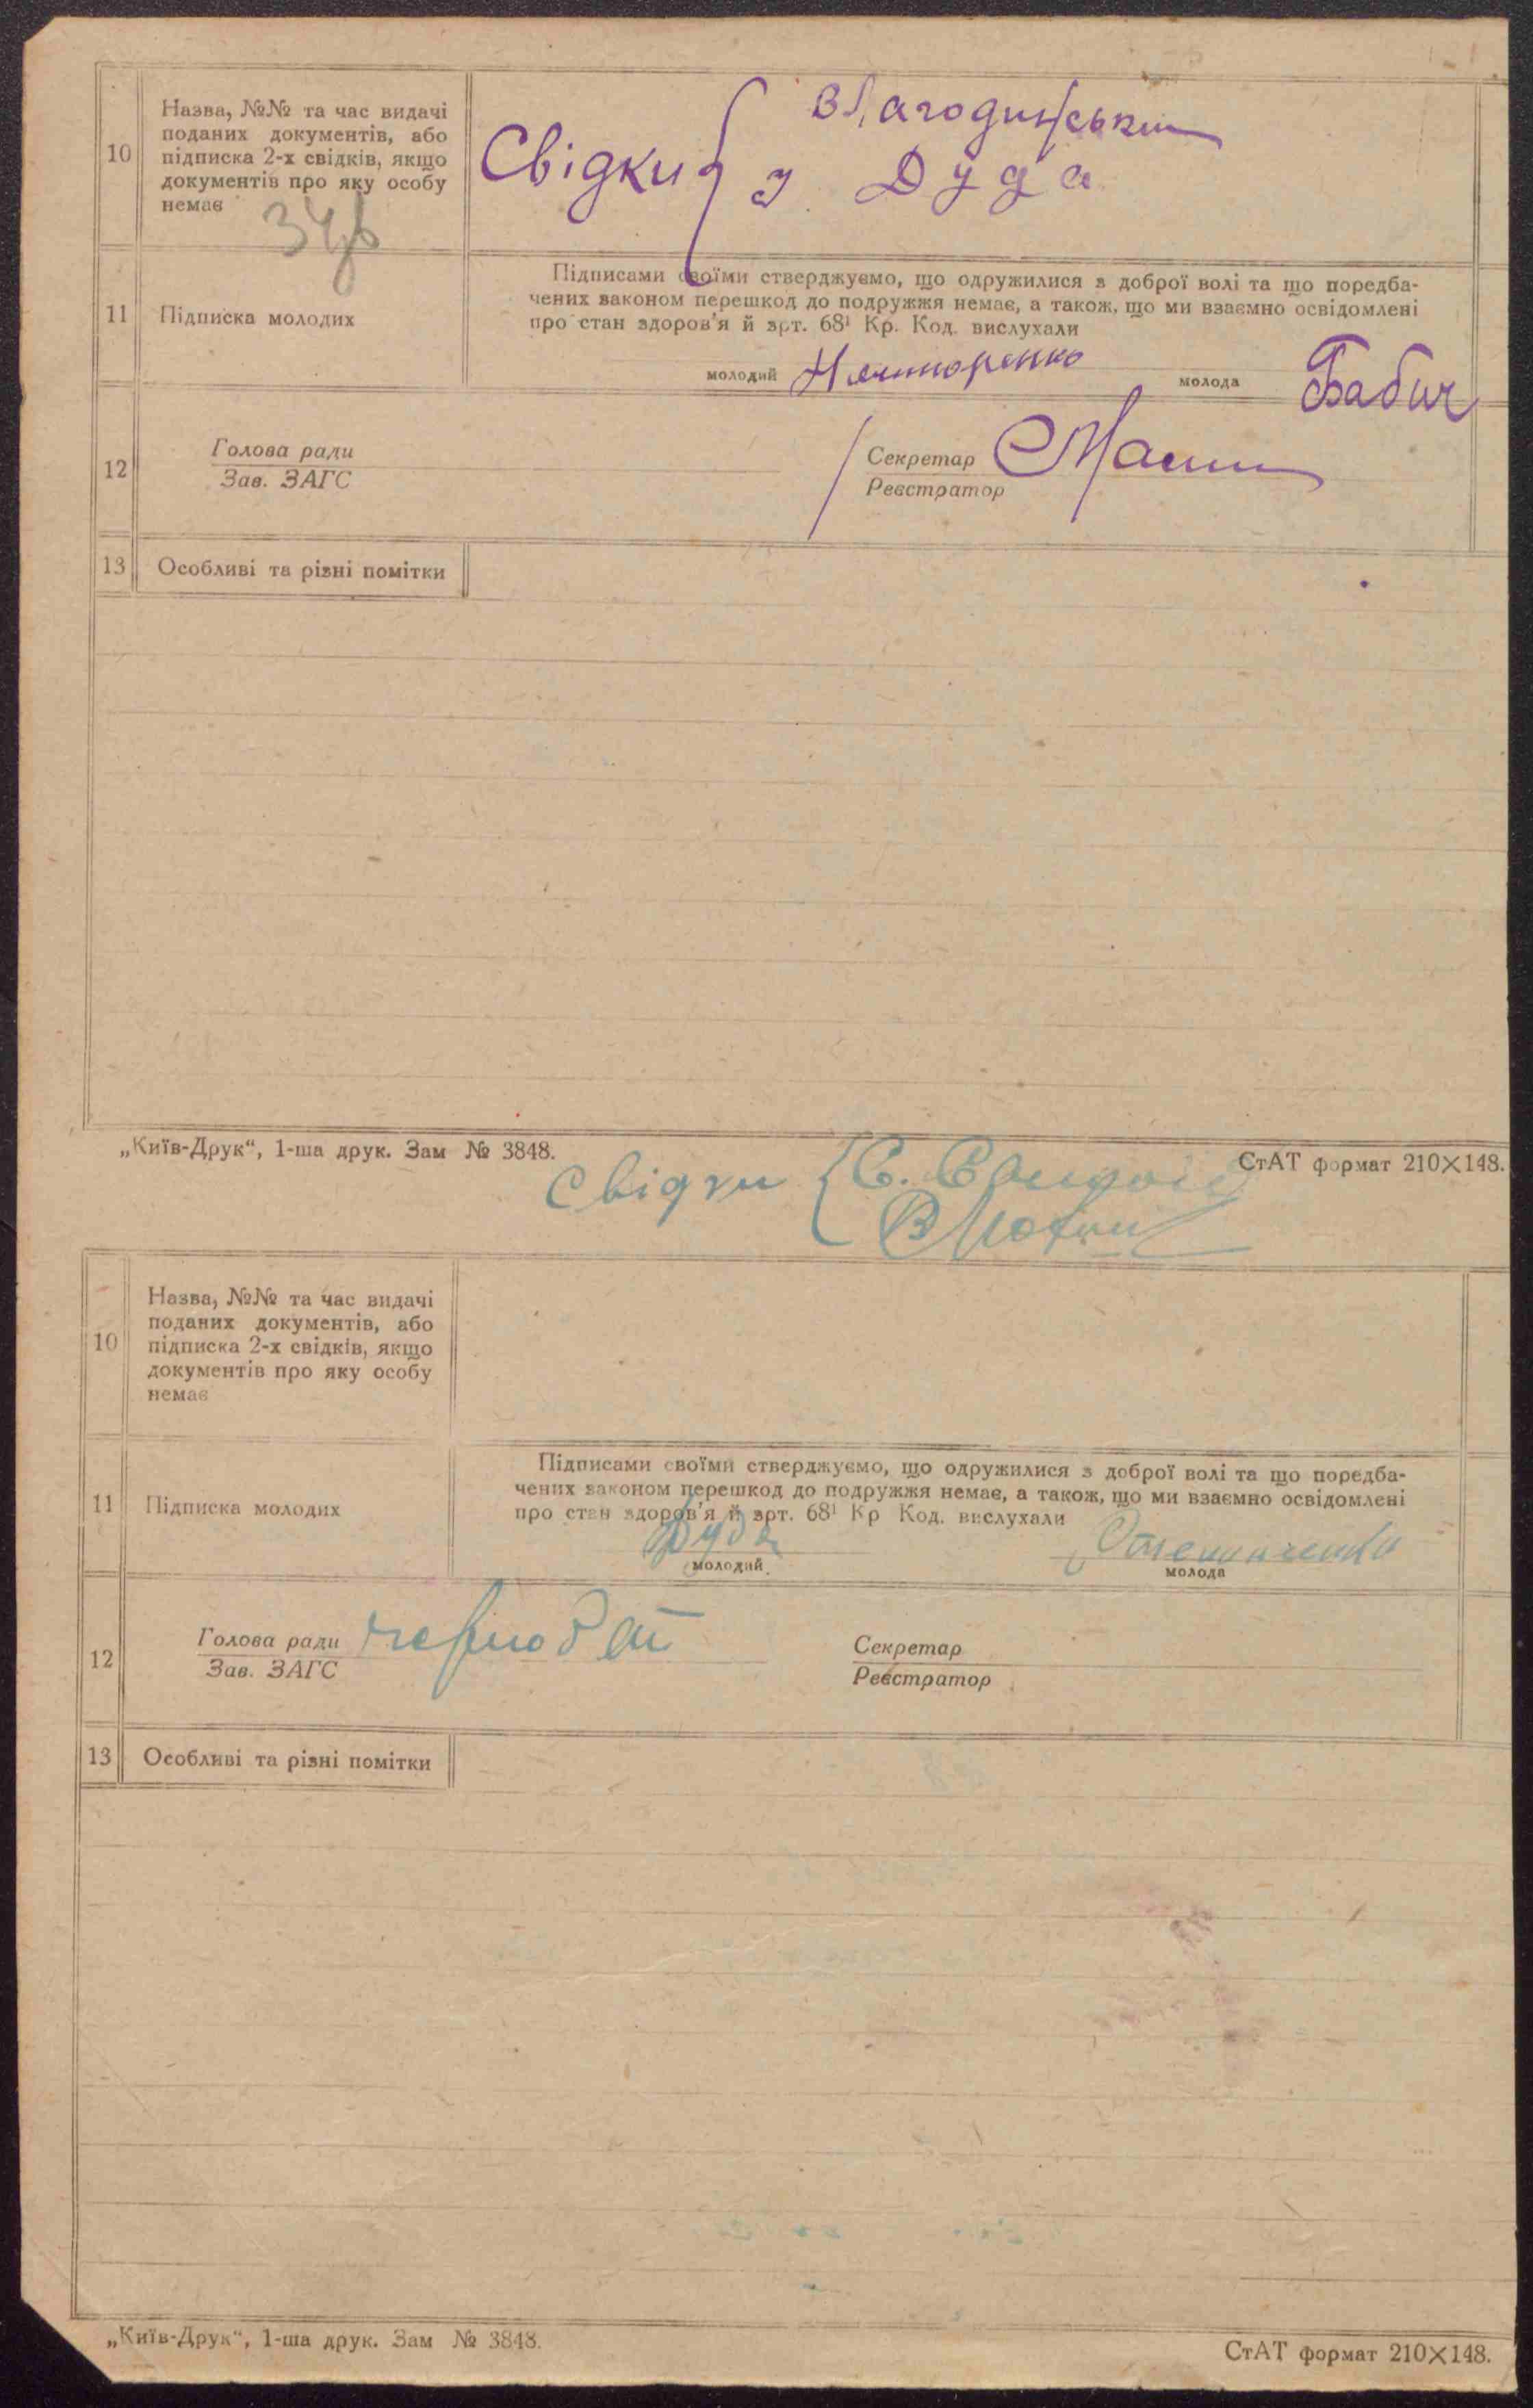 10
Назва, №№ та час видачі
поданих документів, або
підписка 2-х свідків, якщо
документів про яку особу
немає
34
Свідки
Благодинський
Дуда
11
Підписка молодих
Підписами своїми стверджуємо, що одружилися з доброї волі та що поредба-
чених законом перешкод до подружжя немає, а також, що ми взаємно освідомлені
про стан здоров'я й арт. 68¹ Кр. Код. вислухали
молодий
молода Бабич
12
Голова ради
Зав. ЗАГС
Секретар
Реєстратор
13
Особливі та різні помітки
„Київ-Друк“, 1-ша друк. Зам № 3848.
СтАТ формат 210×148.
Свідки
10
Назва, №№ та час видачі
поданих документів, або
підписка 2-х свідків, якщо
документів про яку особу
немає
11
Підписка молодих
Підписами своїми стверджуємо, що одружилися з доброї волі та що поредба-
чених законом перешкод до подружжя немає, а також, що ми взаємно освідомлені
про стан здоров'я й арт. 68¹ Кр Код. вислухали
Дуда
молодий
молода
12
Голова ради
Зав. ЗАГС
Секретар
Реєстратор
13
Особливі та різні помітки
„Київ-Друк“, 1-ша друк. Зам № 3848.
СтАТ формат 210×148.